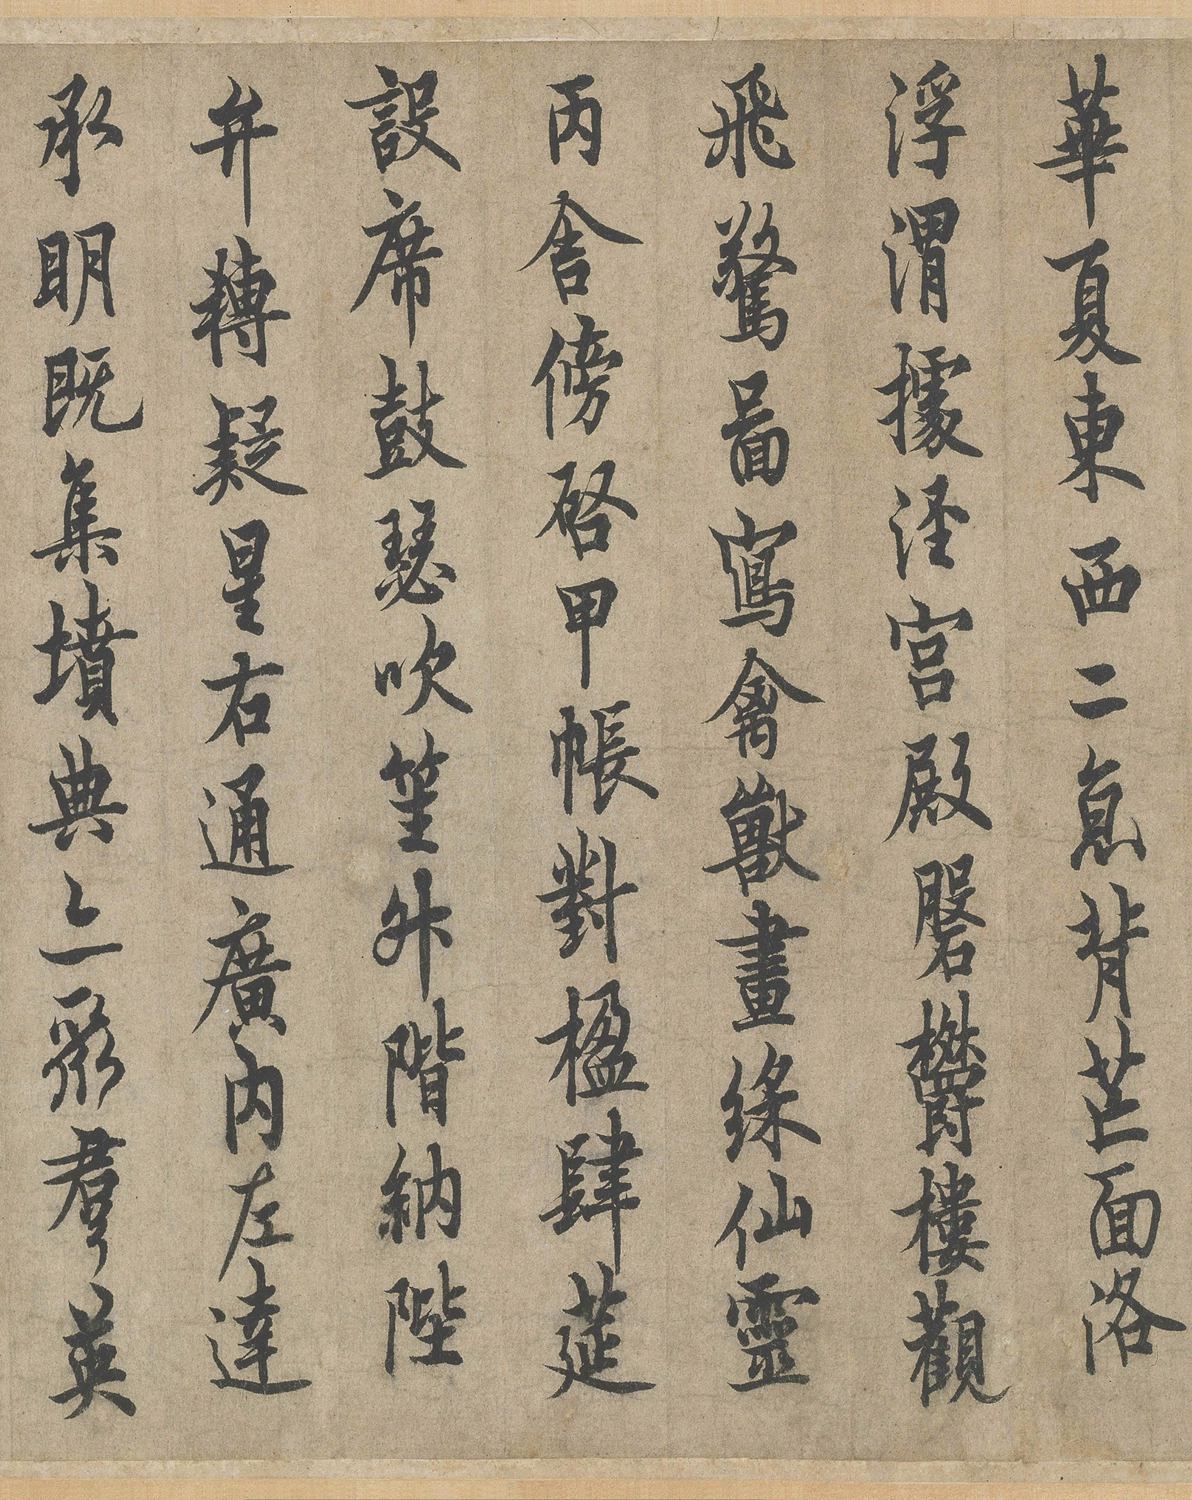 華夏東西二京背芒面洛
浮渭據涇宮殿磐欝樓觀
飛驚啚寫禽獸畫綵仙靈
丙舍傍啓甲帳對楹肆莚
設席鼓瑟吹笙升階納陛
弁轉疑星右通廣内左達
承明既集墳典亦聚羣英